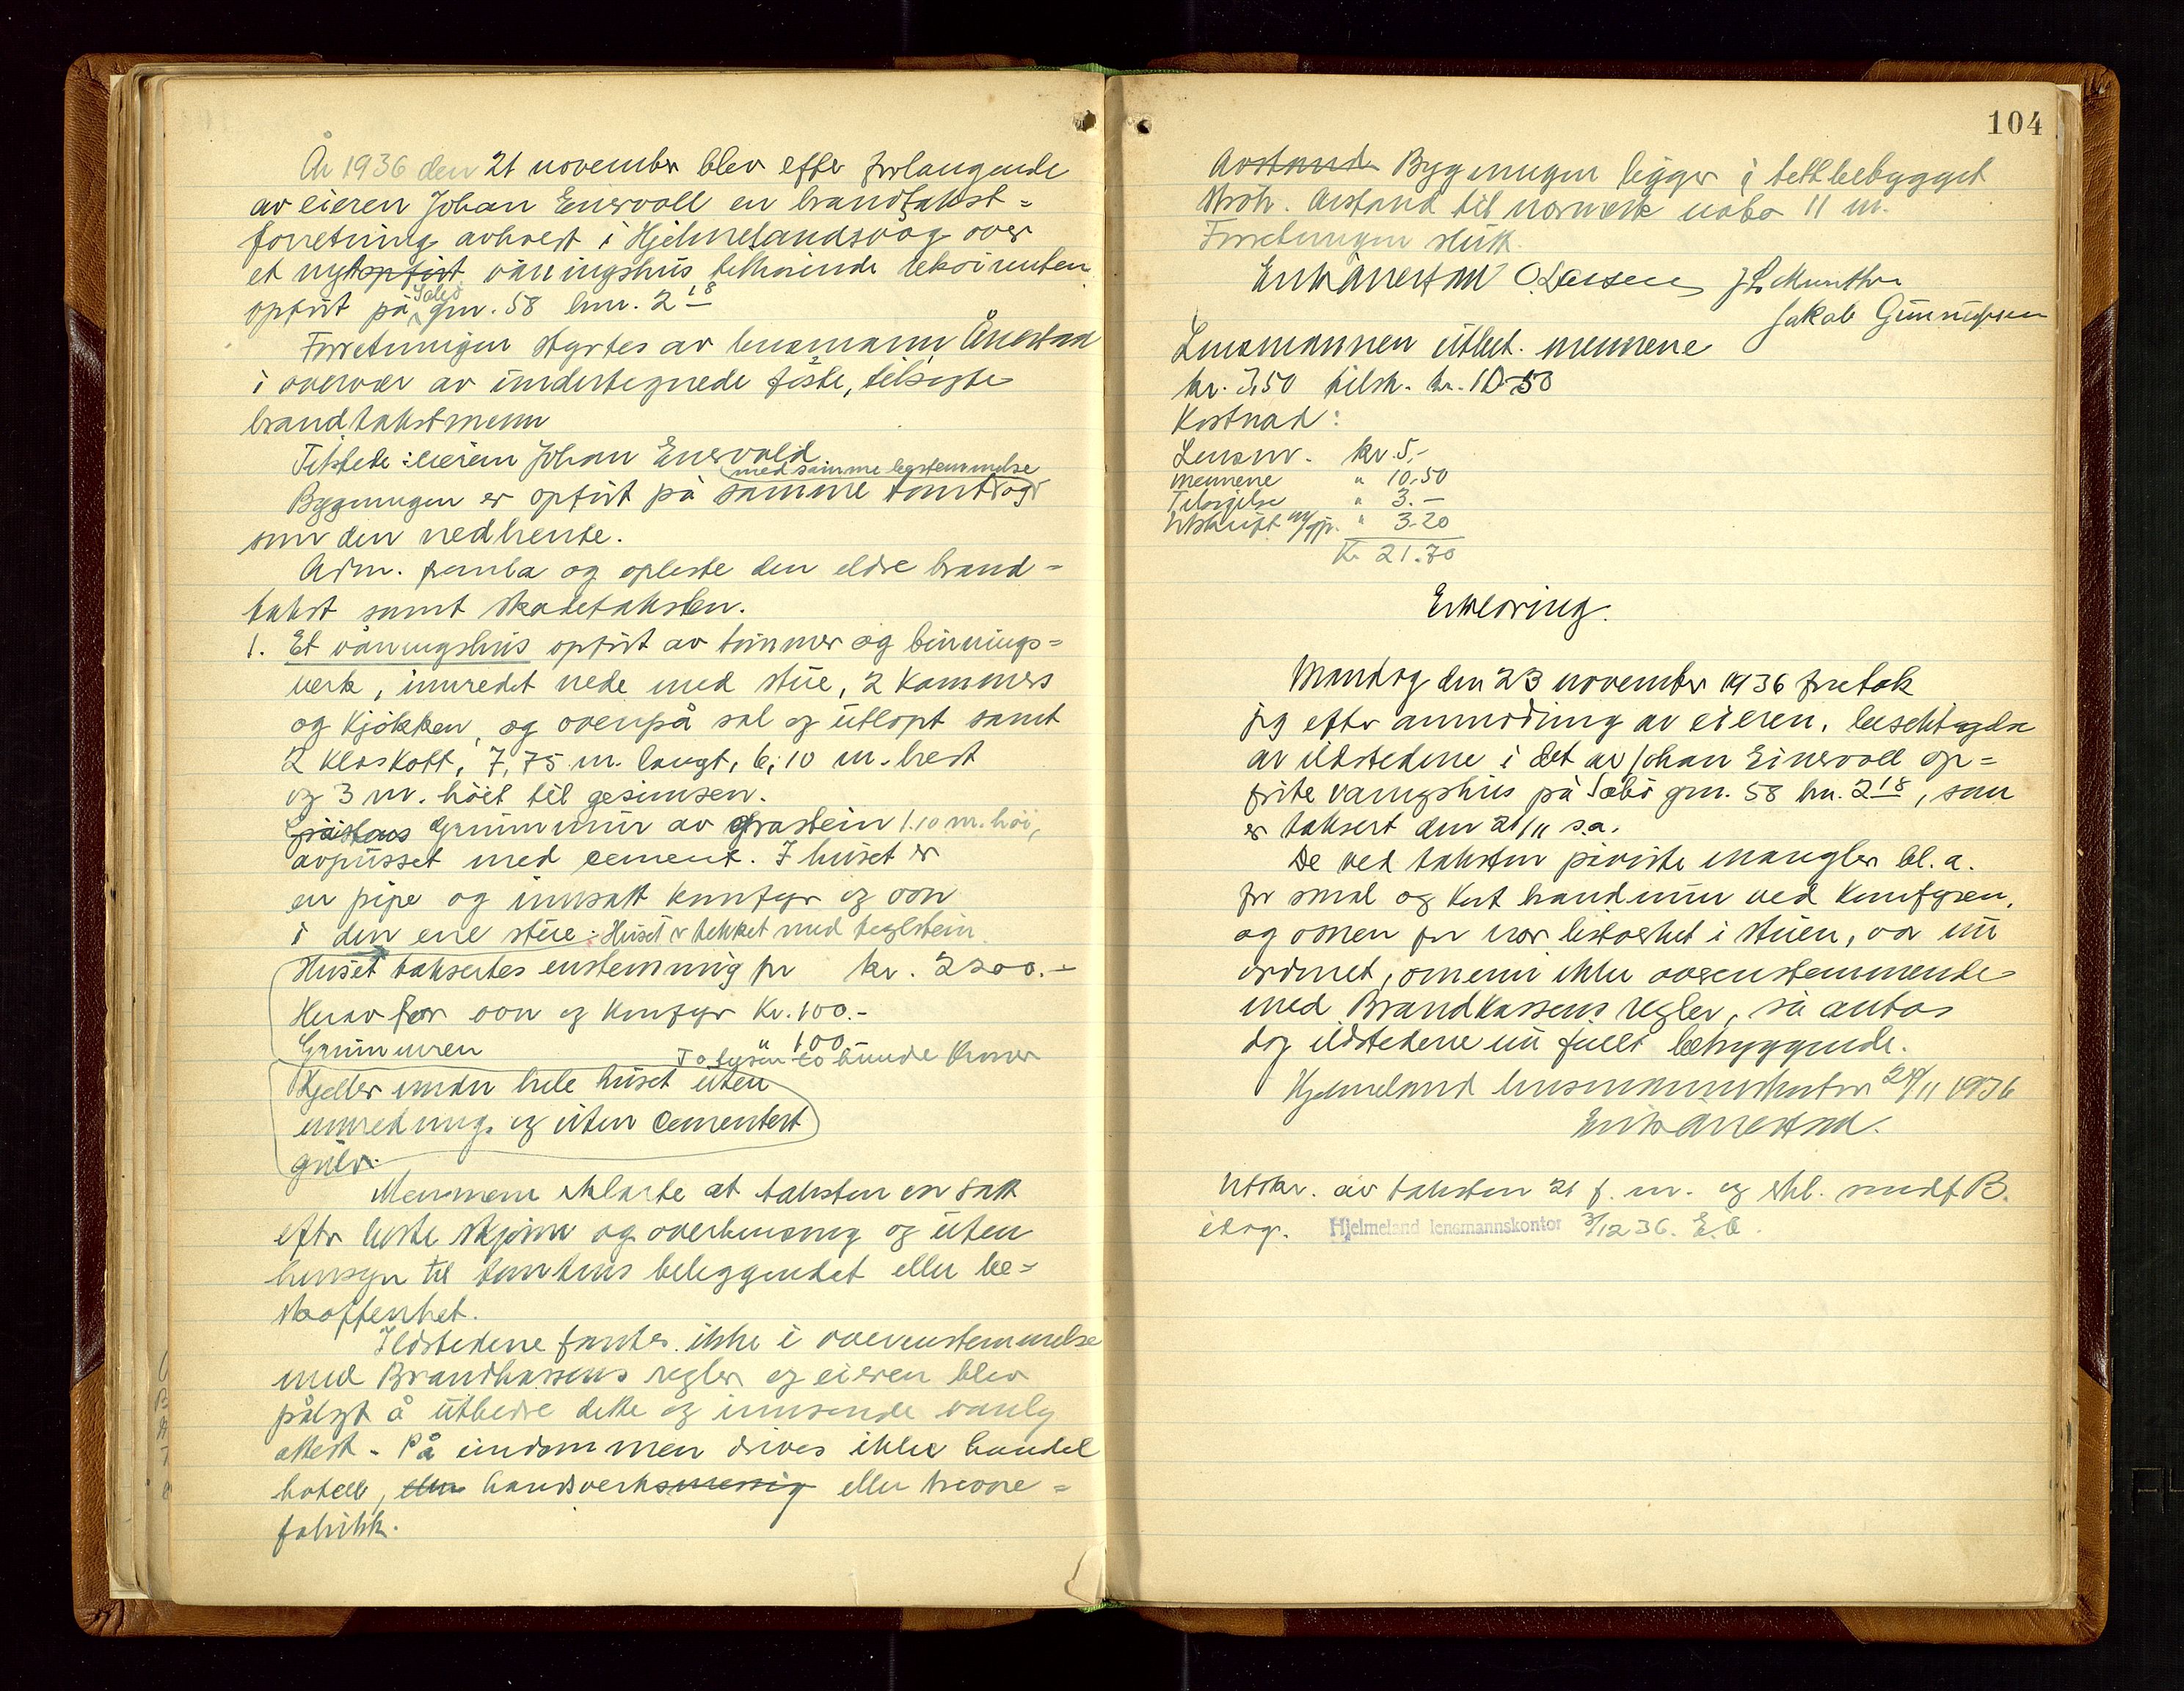 År 1936 den 21 november blev efter forlangende
av eieren Johan Enervoll en brandtakst-
forretning avholdt i Hjelmelandsvåg over
et nytopført våningshus tilhørende rekvirenten
opført på Sæbø gnr. 58 bnr. 2 18
Forretningen styrtes av lensmann Årrestad
i overvær av undertegnede faste, tilsagte
brandtakstmenn
Tilstede: eieren Johan Enervold
med samme bestemmelse
Bygningen er opført på samme tomt og
som den nedbrente.
Adm. femla og opleste den eldre brand-
takst samt skadetaksten.
1. Et våningshus opført av tømmer og binnings-
verk, innredet nede med stue, 2 kammers
og kjøkken, og ovenpå sal og utlopt samt
2 kleskott, 7,75 m. langt, 6,10 m. bredt
og 3 m. høit til gesimsen.
Grunnmur av gråstein 1.10 m. høi,
avpusset med cement. I huset er
en pipe og innsatt komfyr og ovn
i den ene stue. Huset er tekket med teglstein
Huset takseres enstemmig for kr. 2200.-
Herav for ovn og komfyr Kr. 100.-
Grunnmuren " 100
To tusen to hundre kroner
Kjeller under hele huset uten
innredning og uten cementert
gulv.
Mennene erklærte at taksten er satt
efter beste skjønn og overbevisning og uten
hensyn til tomtens beliggendet eller be-
skaffenhet.
Ildstedene fantes ikke i overenstemmelse
med Brandkassens regler og eieren blev
pålagt å utbedre dette og innsende vanlig
attest. - På eindommen drives ikke handel
hotell, eller handverksmessig eller trevare-
fabrikk.
104
Avstand Bygningen ligger i tettbebygget
strøk. Avstand til nærmeste nabo 11 m.
Forretningen slutt.
Enk Årrestad O. Larsen J L Munthe
Jakob Gunnufsen
Lensmannen utbet. mennene
kr. 3,50 tilsk. kr. 10.50
Kostnad:
Lensm. kr. 5,-
mennene " 10.50
Tilsigelse " 3.-
Utskrift m/gp. " 3.20
Kr 21.70
Erklæring.
Mandag den 23 november 1936 foretok
jeg efter anmodning av eieren, besiktigelse
av ildstedene i det av Johan Einervoll op-
førte vaningshus på Sæbø gnr. 58 bnr. 2 18, som
er taksert den 21/11 s.a.
De ved taksten påviste mangler bl. a.
for smal og kort brandmur ved komfyren,
og ovnen for nær listverket i stuen, var nu
ordnet, omenn ikke overenstemmende
med Brandkassens regler, så antas
dog ildstedene nu fullt betryggende.
Hjelmeland lensmannskontor 24/11 1936
Enk Årrestad.
Utskr. av taksten 21 f. m. og erkl. sendt B.
idag. Hjelmeland lensmannskontor 3/12 36. E.Å.